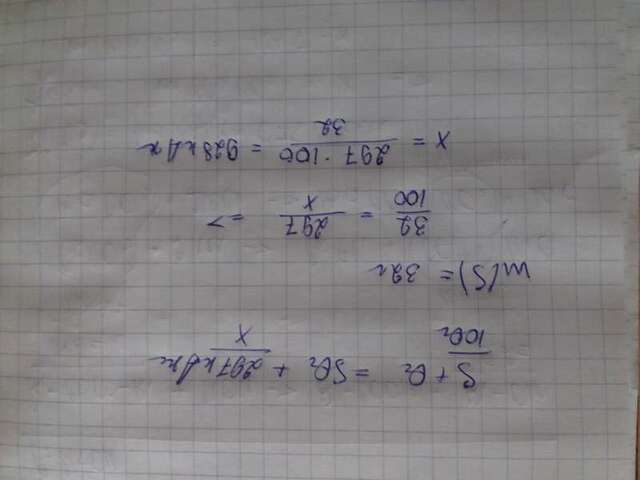 S + O₂ = SO₂ + 297 кДж
100г x
m(S) = 32г
32/100 = 297/x =>
x = 297 · 100/32 = 928 кДж